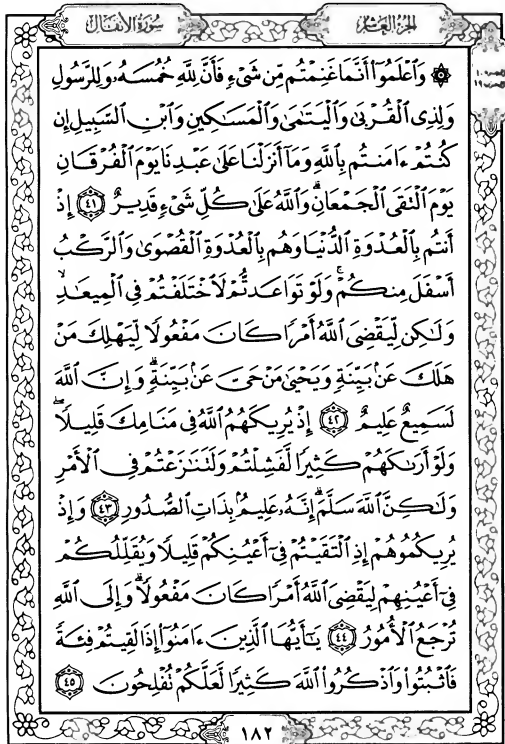 سُورَةُ الأَنفَال
الجزء العَاشِر
۞ وَٱعْلَمُوٓا۟ أَنَّمَا غَنِمْتُم مِّن شَىْءٍ فَأَنَّ لِلَّهِ خُمُسَهُۥ وَلِلرَّسُولِ
وَلِذِى ٱلْقُرْبَىٰ وَٱلْيَتَٰمَىٰ وَٱلْمَسَٰكِينِ وَٱبْنِ ٱلسَّبِيلِ إِن
كُنتُمْ ءَامَنتُم بِٱللَّهِ وَمَآ أَنزَلْنَا عَلَىٰ عَبْدِنَا يَوْمَ ٱلْفُرْقَانِ
يَوْمَ ٱلْتَقَى ٱلْجَمْعَانِ ۗ وَٱللَّهُ عَلَىٰ كُلِّ شَىْءٍ قَدِيرٌ ٤١ إِذْ
أَنتُم بِٱلْعُدْوَةِ ٱلدُّنْيَا وَهُم بِٱلْعُدْوَةِ ٱلْقُصْوَىٰ وَٱلرَّكْبُ
أَسْفَلَ مِنكُمْ ۚ وَلَوْ تَوَاعَدتُّمْ لَٱخْتَلَفْتُمْ فِى ٱلْمِيعَٰدِ ۙ
وَلَٰكِن لِّيَقْضِىَ ٱللَّهُ أَمْرًا كَانَ مَفْعُولًا لِّيَهْلِكَ مَنْ
هَلَكَ عَنۢ بَيِّنَةٍ وَيَحْيَىٰ مَنْ حَىَّ عَنۢ بَيِّنَةٍ ۗ وَإِنَّ ٱللَّهَ
لَسَمِيعٌ عَلِيمٌ ٤٢ إِذْ يُرِيكَهُمُ ٱللَّهُ فِى مَنَامِكَ قَلِيلًا ۖ
وَلَوْ أَرَىٰكَهُمْ كَثِيرًا لَّفَشِلْتُمْ وَلَتَنَٰزَعْتُمْ فِى ٱلْأَمْرِ
وَلَٰكِنَّ ٱللَّهَ سَلَّمَ ۗ إِنَّهُۥ عَلِيمٌۢ بِذَاتِ ٱلصُّدُورِ ٤٣ وَإِذْ
يُرِيكُمُوهُمْ إِذِ ٱلْتَقَيْتُمْ فِىٓ أَعْيُنِكُمْ قَلِيلًا وَيُقَلِّلُكُمْ
فِىٓ أَعْيُنِهِمْ لِيَقْضِىَ ٱللَّهُ أَمْرًا كَانَ مَفْعُولًا ۗ وَإِلَى ٱللَّهِ
تُرْجَعُ ٱلْأُمُورُ ٤٤ يَٰٓأَيُّهَا ٱلَّذِينَ ءَامَنُوٓا۟ إِذَا لَقِيتُمْ فِئَةً
فَٱثْبُتُوا۟ وَٱذْكُرُوا۟ ٱللَّهَ كَثِيرًا لَّعَلَّكُمْ تُفْلِحُونَ ٤٥
١٨٢